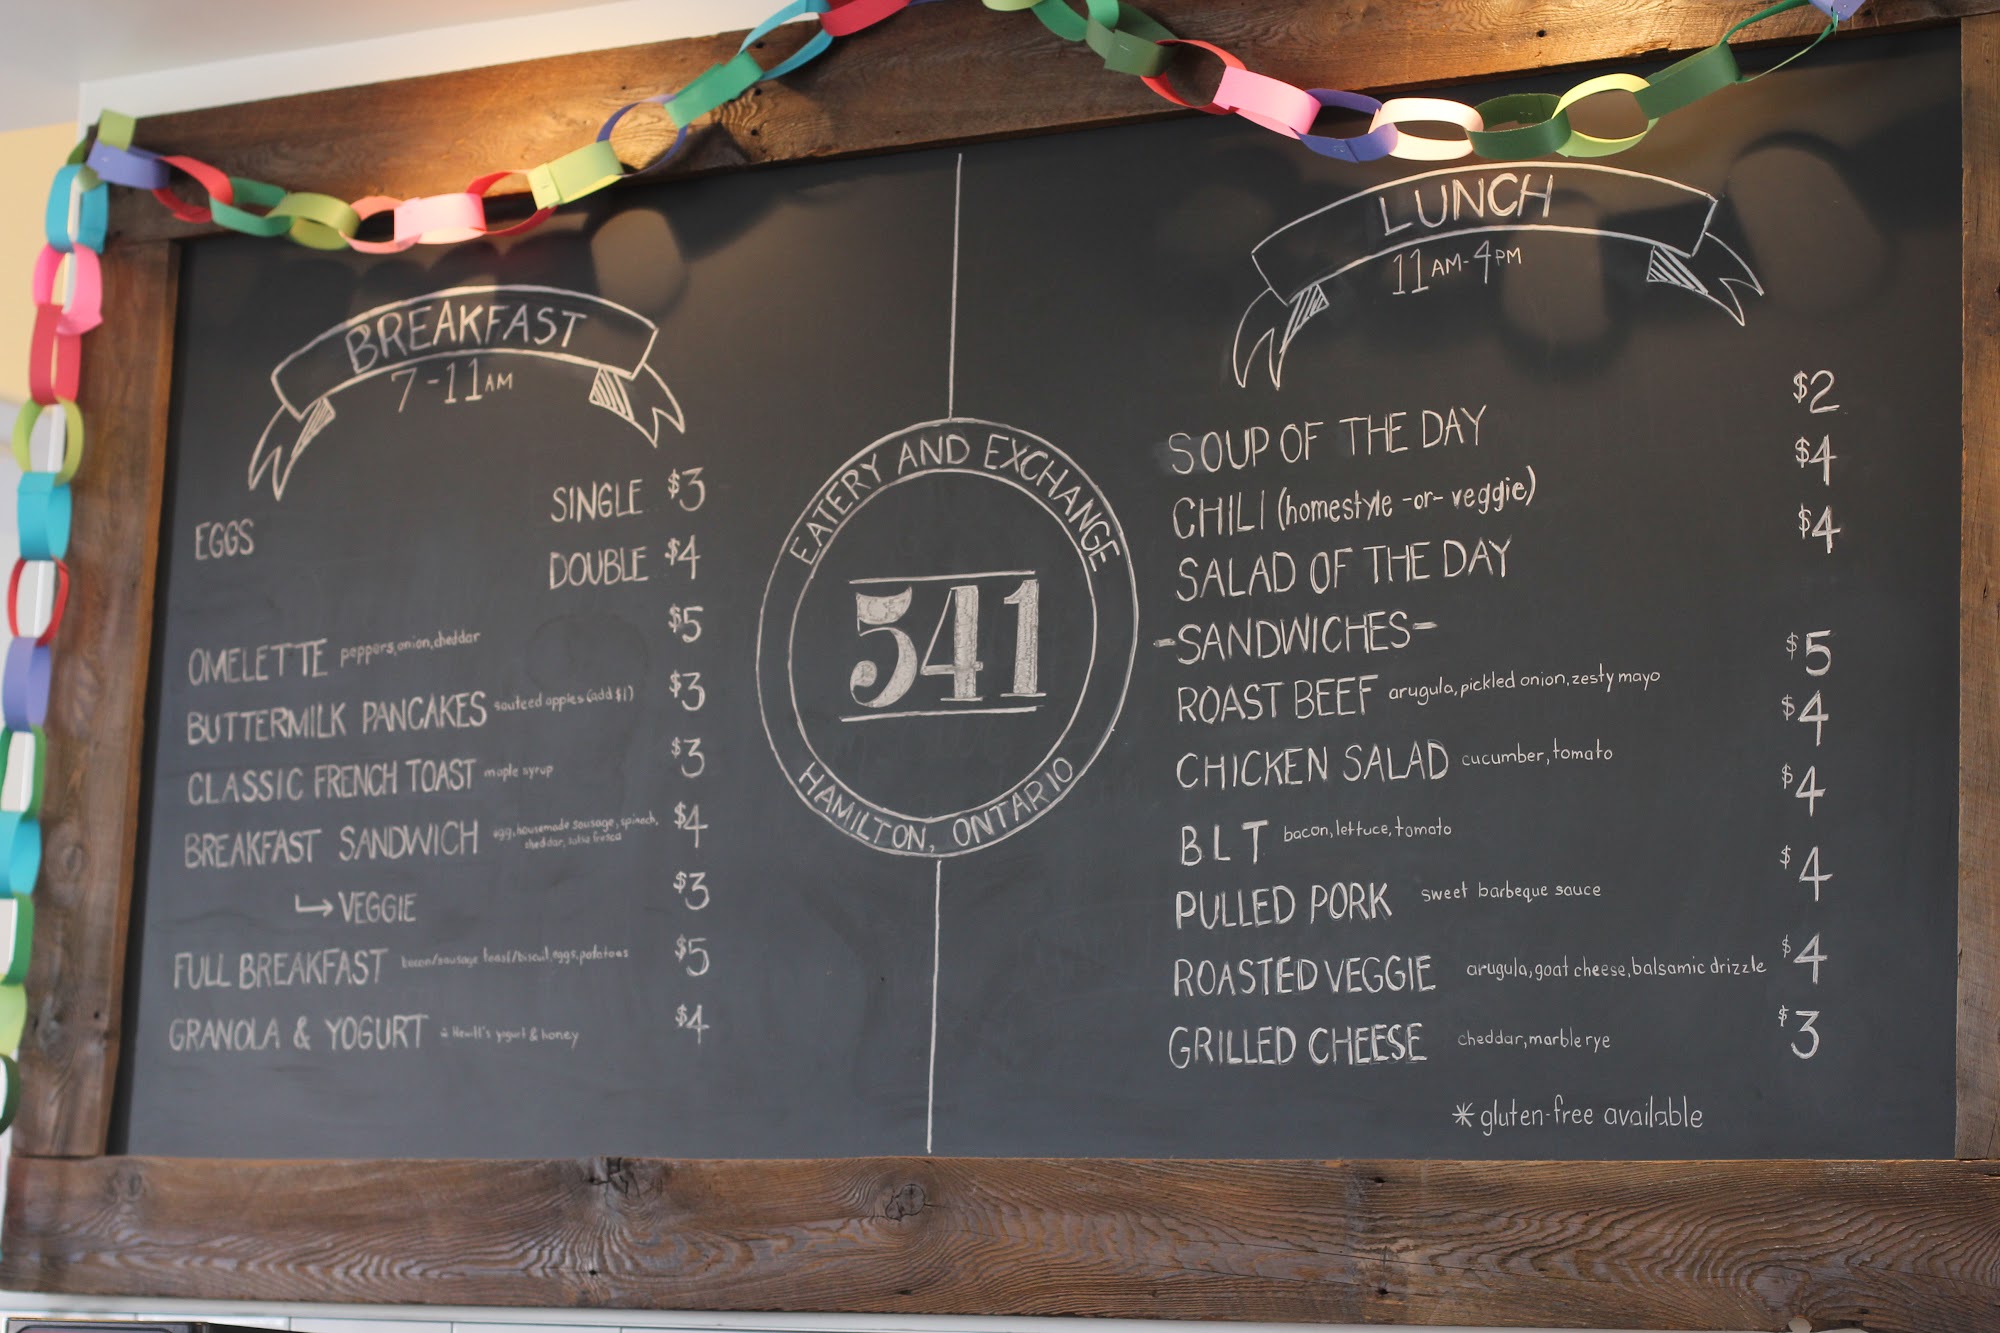 BREAKFAST
7-11AM
EGGS SINGLE $3
DOUBLE $4
OMELETTE peppers, onion, cheddar $5
BUTTERMILK PANCAKES sauteed apples (add $1) $3
CLASSIC FRENCH TOAST maple syrup $3
BREAKFAST SANDWICH egg, housemade sausage, spinach, $4
cheddar, salsa fresca
VEGGIE $3
FULL BREAKFAST bacon/sausage toast/biscuit, eggs, potatoes $5
GRANOLA & YOGURT Hewitt's yogurt & honey $4
EATERY AND EXCHANGE
541
HAMILTON, ONTARIO
LUNCH
11AM-4PM
SOUP OF THE DAY $2
CHILI (homestyle -or- veggie) $4
SALAD OF THE DAY $4
-SANDWICHES-
ROAST BEEF arugula, pickled onion, zesty mayo $5
CHICKEN SALAD cucumber, tomato $4
BLT bacon, lettuce, tomato $4
PULLED PORK sweet barbeque sauce $4
ROASTED VEGGIE arugula, goat cheese, balsamic drizzle $4
GRILLED CHEESE cheddar, marble rye $3
* gluten-free available